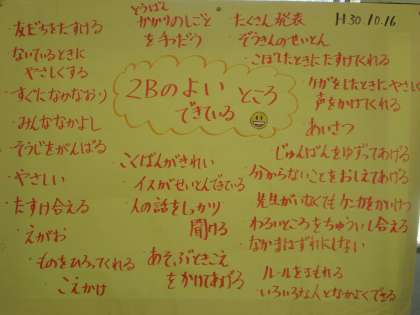 H30.10.16
2Bのよいところ
できている
・友だちをたすける
・ないているときに
やさしくする
・すぐになかなおり
・みんななかよし
・そうじをがんばる
・やさしい
・たすけ合える
・えがお
・ものをひろってくれる
・こえかけ
・とうばん
かかりのしごと
を手つだう
・こくばんがきれい
・イスがせいとんできている
・人の話をしっかり
聞ける
・あそぶときこえ
をかけてあげる
・たくさん発表
・ぞうきんのせいとん
・こぼしたときにたすけてくれる
・ケガをしたときにやさしく
声をかけてくれる
・あいさつ
・じゅんばんをゆずってあげる
・分からないことをおしえてあげる
・先生がいなくてもケンカをかいけつ
・わるいところをちゅういし合える
・なかまはずれにしない
・ルールをまもれる
・いろいろな人となかよくできる